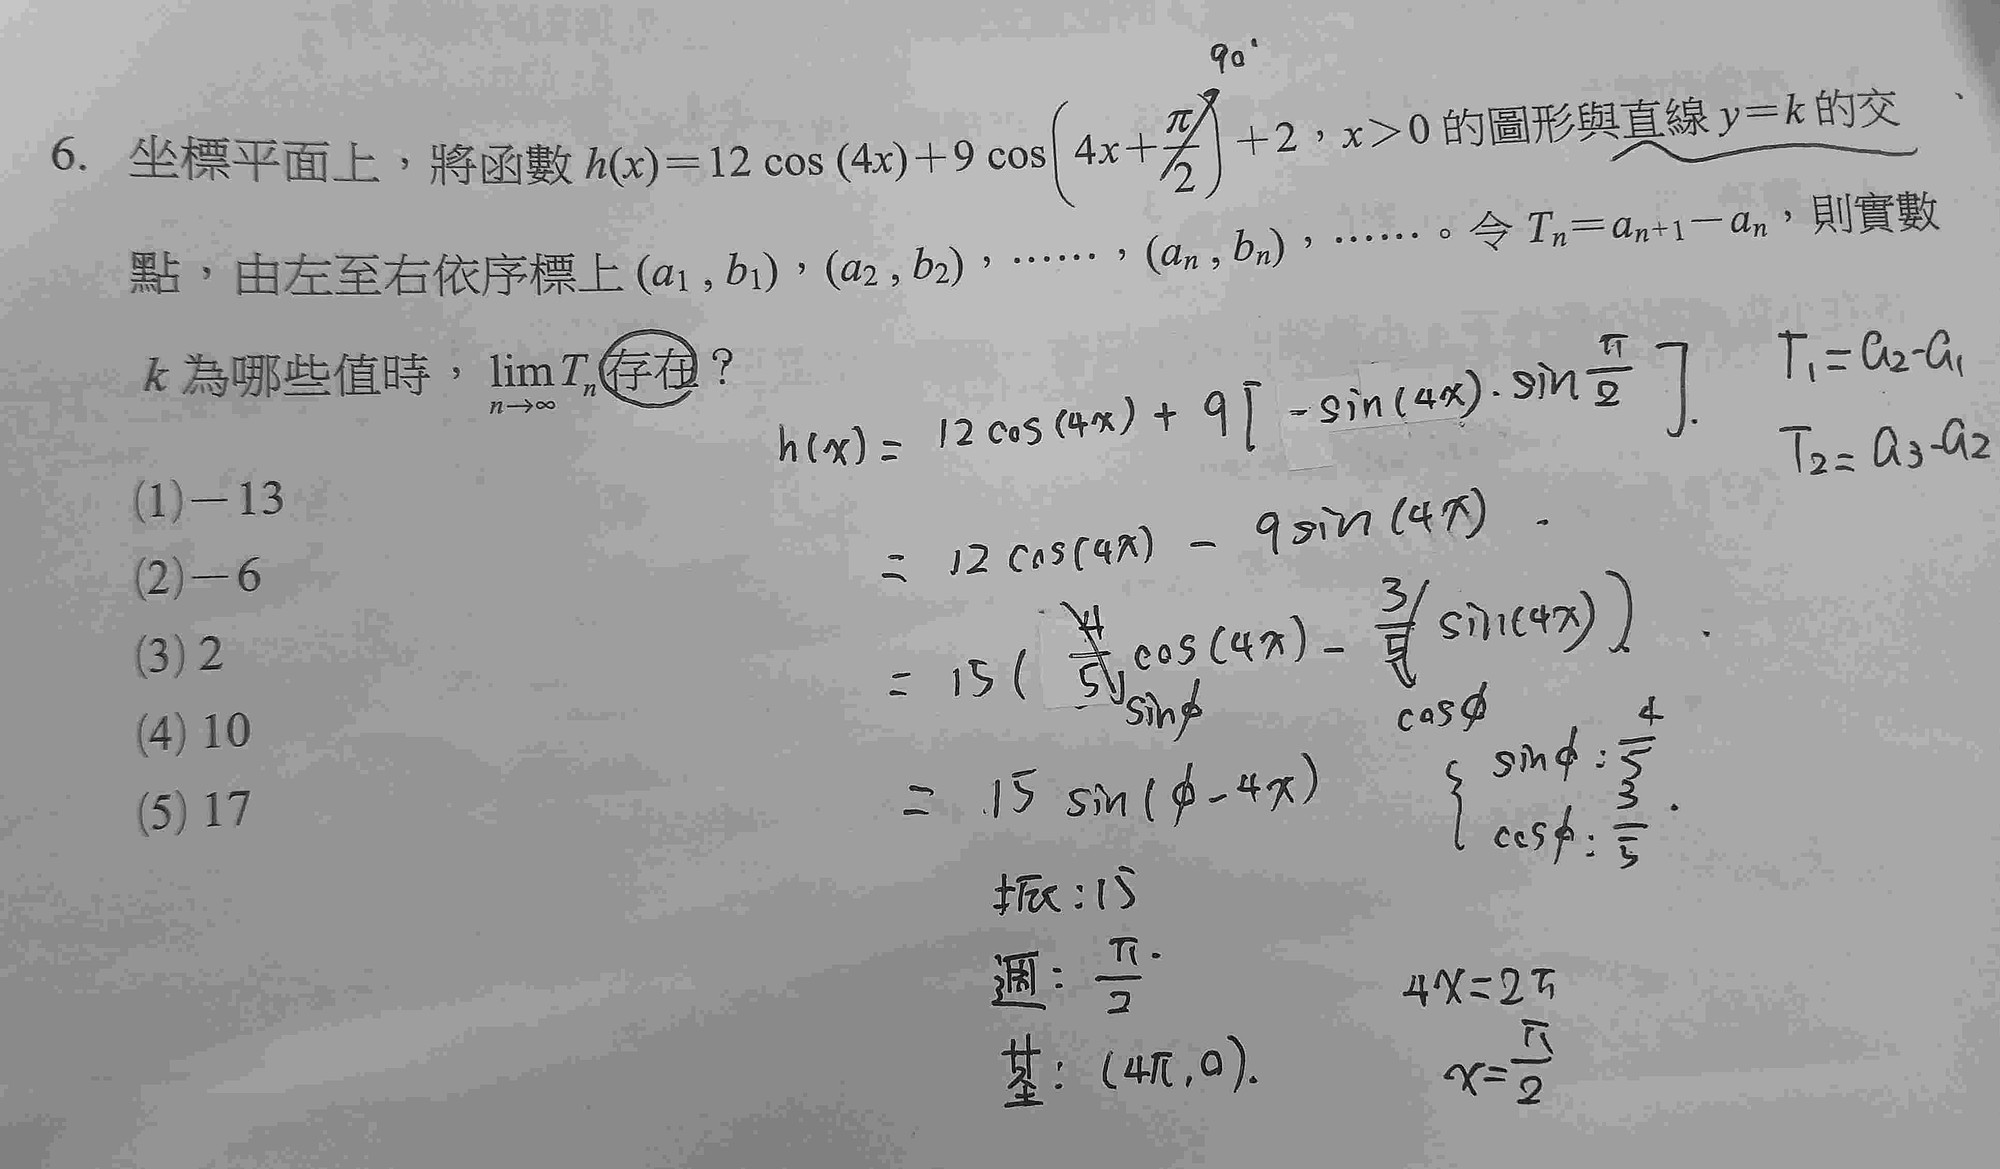 90°
6. 坐標平面上，將函數 h(x)=12 cos (4x)+9 cos(4x+π/2)+2，x>0 的圖形與直線 y=k 的交
點，由左至右依序標上 (a₁, b₁)，(a₂, b₂)，……，(aₙ, bₙ)，……。令 Tₙ=aₙ₊₁−aₙ，則實數
k 為哪些值時，lim Tₙ 存在？
n→∞
(1)−13
(2)−6
(3) 2
(4) 10
(5) 17
h(x)= 12 cos(4x) + 9[ -sin(4x)·sin π/2 ].
= 12 cos(4x) - 9 sin(4x)
= 15 ( 4/5 cos(4x) - 3/5 sin(4x) )
sinϕ cosϕ
= 15 sin(ϕ-4x)
{ sinϕ: 4/5
cosϕ: 3/5.
振:15
週: π/2.
基: (4π,0).
4x=2π
x=π/2
T₁=a₂-a₁
T₂=a₃-a₂